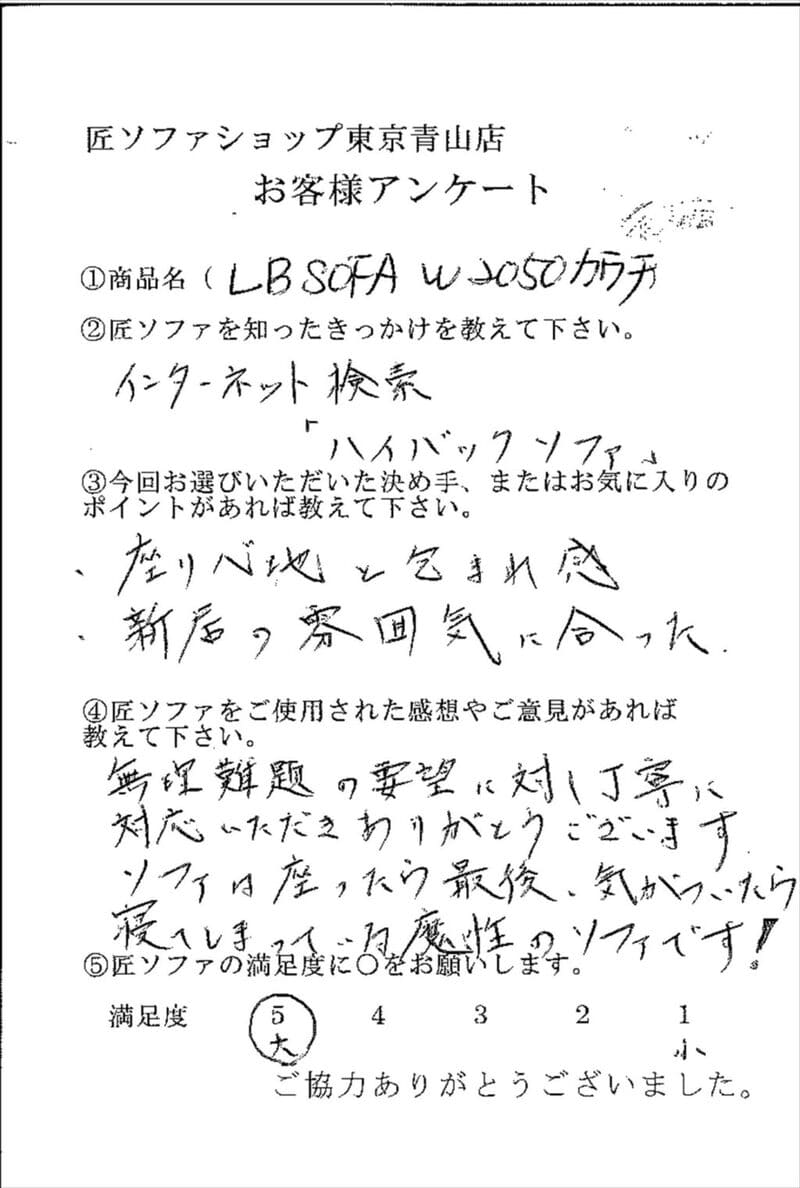 匠ソファショップ東京青山店
お客様アンケート
①商品名（ LB SOFA W2050カウチ
②匠ソファを知ったきっかけを教えて下さい。
インターネット検索
「ハイバックソファ」
③今回お選びいただいた決め手、またはお気に入りの
ポイントがあれば教えて下さい。
・座り心地と包まれ感
・新居の雰囲気に合った.
④匠ソファをご使用された感想やご意見があれば
教えて下さい。
無理難題の要望に対し丁寧に
対応いただきありがとうございます
ソファは座ったら最後、気がついたら
寝てしまっている魔性のソファです!
⑤匠ソファの満足度に〇をお願いします。
満足度 5 4 3 2 1
大 小
ご協力ありがとうございました。